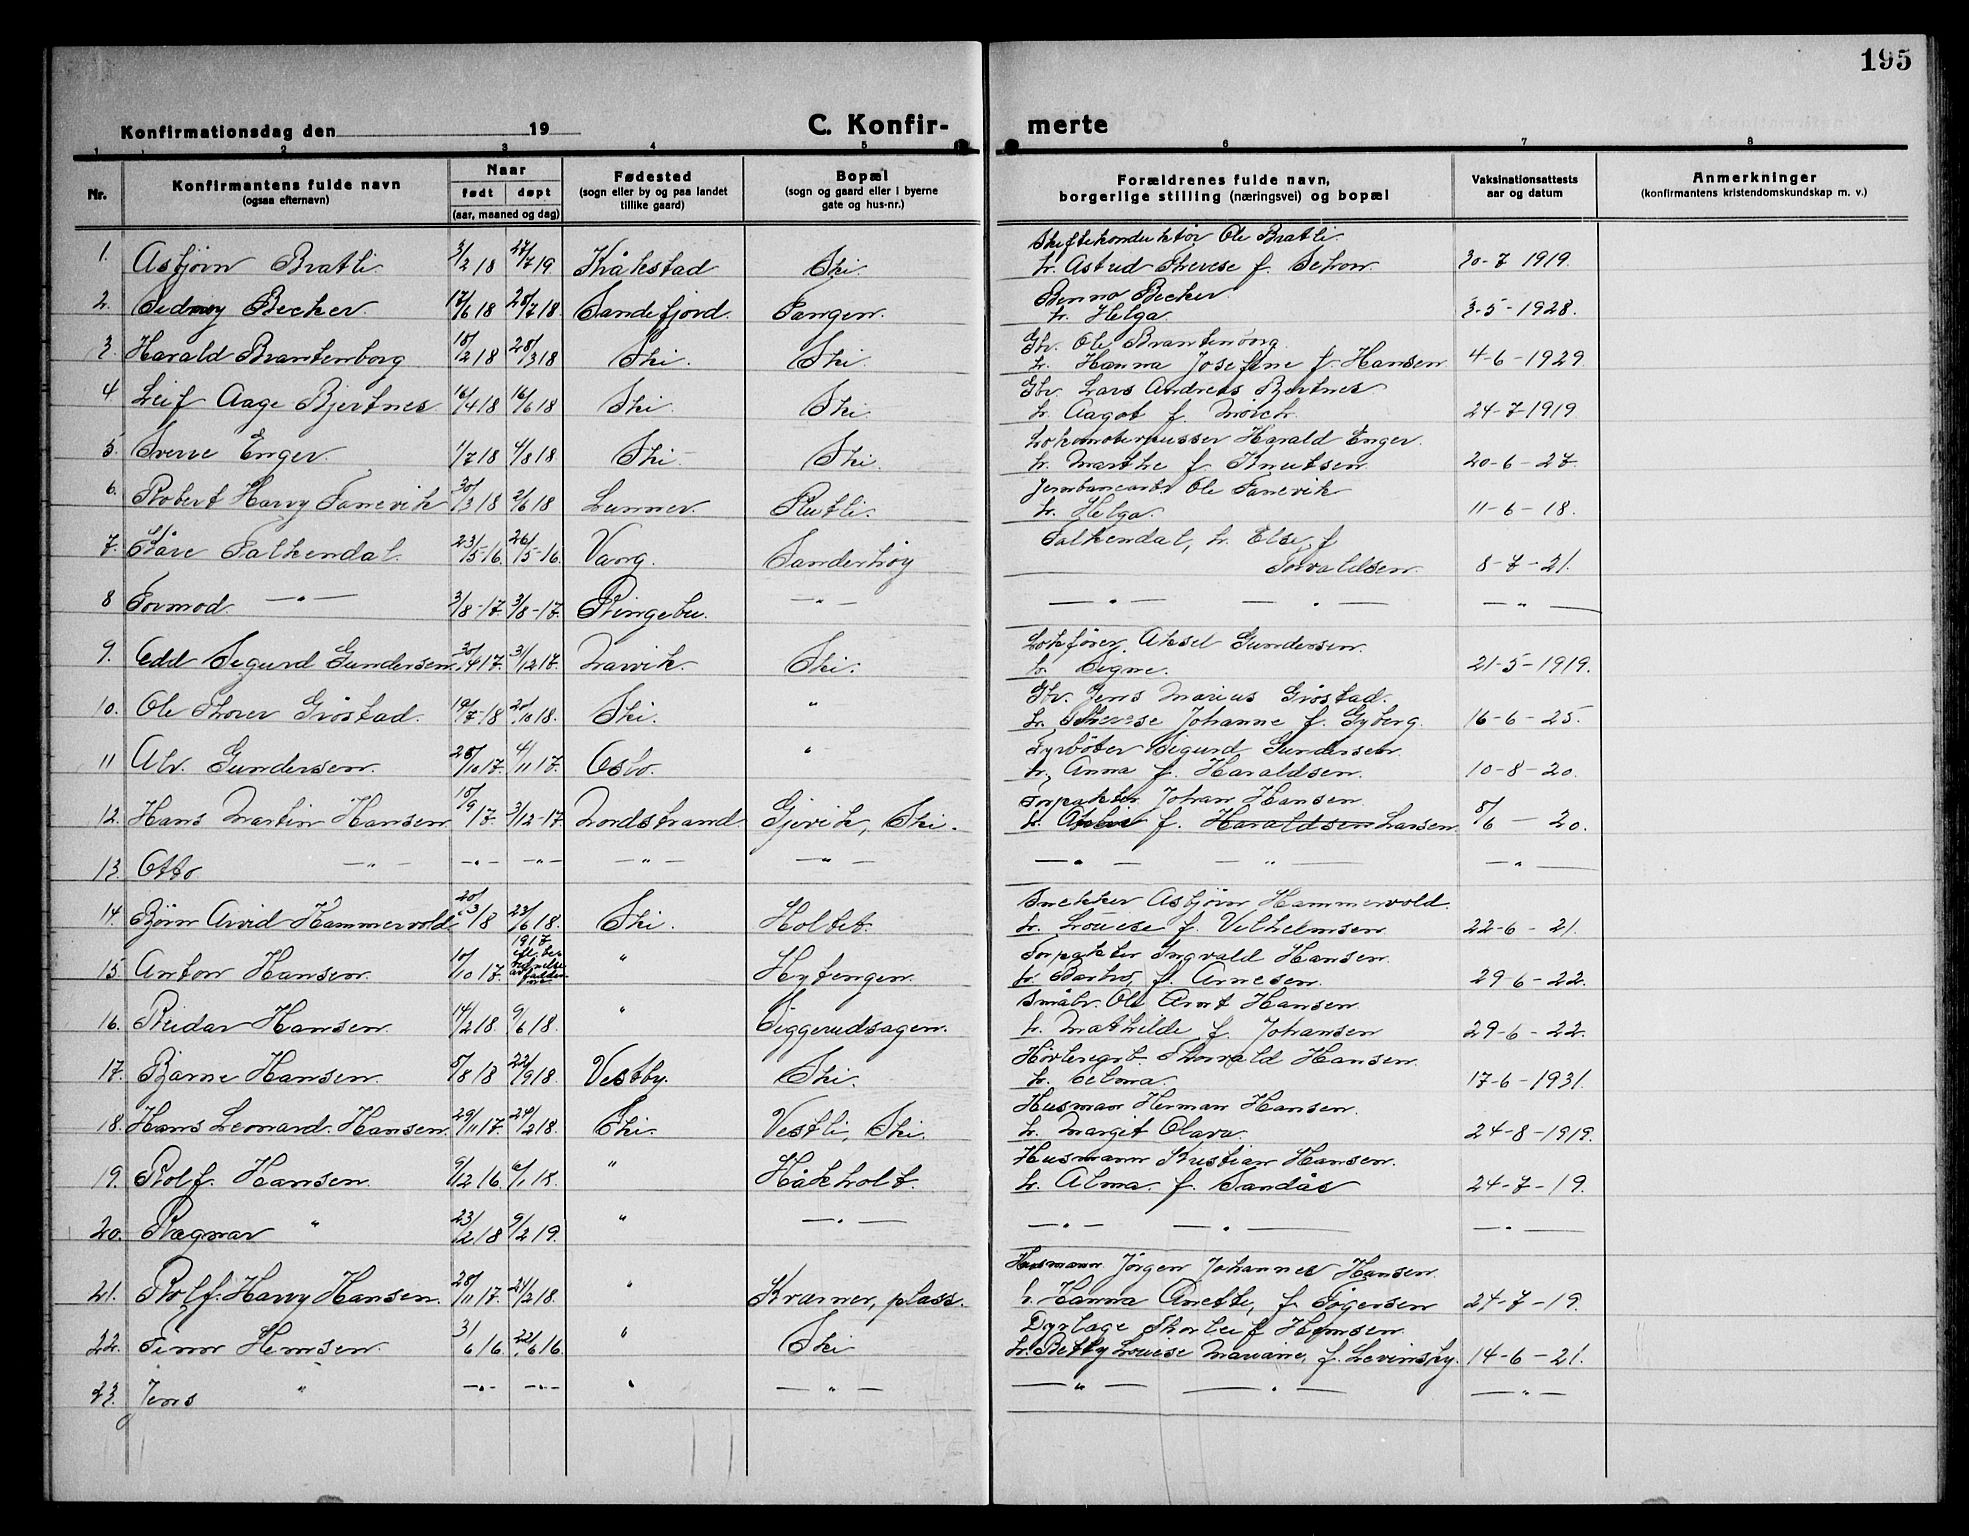 195
Konfirmationsdag den 19
C. Konfir-
merte
1 2 3 4 5 6 7 8
Nr.
Konfirmantens fulde navn
(ogsaa efternavn)
Naar
født døpt
(aar, maaned og dag)
Fødested
(sogn eller by og paa landet
tillike gaard)
Bopæl
(sogn og gaard eller i byerne
gate og hus-nr.)
Forældrenes fulde navn,
borgerlige stilling (næringsvei) og bopæl
Vaksinationsattests
aar og datum
Anmerkninger
(konfirmantens kristendomskundskap m. v.)
Skiftekonduktör Ole Bratli
1. Asbjörn Bratli 3/2 18 27/7 19 Kråkstad Ski. h. Astrid Therese f. 30-7 1919.
Benno Becker.
2. Becker. 17/6 18 28/7 18 Sandefjord. Tangen. h. Helga. 3-5-1928.
Gbr. Ole Brantenborg
3. Harald Brantenborg 18/2 18 28/3 18 Ski. Ski. h. Hanna Josefine f. Hansen 4-6-1929.
Gbr. Lars Andreas Bjertnes
4 Leif Aage Bjertnes 16/4 18 16/6 18 Ski. Ski. h. Aagot f. Mörch. 24-7-1919
Lokomotivpusser Harald Enger.
5. Sverre Enger. 1/7 18 4/8 18 Ski. Ski. h. Marthe f. Knutsen. 20-6-27
Jernbanearb. Ole Tanevik
6. Robert Harry Tanevik 30/3 18 2/6 18 Lunner. Rutli. h. Helga. 11-6-18.
Falkendal, h. Else, f
7. Kåre Falkendal. 23/5-16. 26/5-16. Vang. Sanderhøy Torvaldsen. 8-7-21.
8 Tormod. —"— 3/8-17. 3/8-17. Ringebu. —"— —"— —"— —"—
Lokfører. Aksel Gundersen.
9. Edd Sigurd Gundersen. 30/4 17. 3/12 17. Narvik. Ski. h. Signe. 21-5-1919.
Gbr. Jens Marius Gröstad.
10. Ole Thorer Gröstad. 19/7-18 20/10 18. Ski. " h. Therese Johanne f. Gyberg. 16-6-25.
Fyrböter Sigurd Gundersen.
11 Alv. Gundersen. 28/10 17. 4/11 17. Oslo. " h. Anna f. Haraldsen. 10-8-20.
Forpakter Johan Hansen.
12. Hans Martin Hansen 18/9 17. 3/12-17. Nordstrand Gjevik, Ski. h. f. Haraldsen Larsen. 8/6 - 20.
13. Otto —"— —"— —"— —"— —"— —"— —"— —"—
Snekker Asbjörn Hammervold.
14. Björn Arvid Hammervold 20/3 18 23/6 18. Ski. Holtet. h. Louise f. Vilhelmsen. 22-6-21.
Forpakter Ingvald Hansen.
15 Anton Hansen. 10/10 17. 1917 " Hytengen. f. Arnesen. 29-6-22.
Småbr. Ole Arnt Hansen.
16. Reidar Hansen. 14/2 18. 9/6 18. " Siggerudsagen. h. Mathilde f. Johansen 29-6-22.
Thorvald Hansen.
17. Bjarne Hansen. 5/8 18 22/9 18. Vestby. Ski. h. Selma. 17-6-1931.
Husmann Herman Hansen.
18. Hans Leonard. Hansen. 29/11 17. 24/2 18. Ski. Vestli, Ski. h. Margit Olava. 24-8-1919.
Husmann Kristian Hansen.
19. Rolf. Hansen. 9/12 16. 6/1 18. " Håkholt. h. Alma. f. Sandås 24-7-19.
20. Ragnar " 23/12 18 9/2 19. " —"— —"— —"— —"—
Husmann Jörgen Johannes Hansen.
21. Rolf. Harry Hansen. 28/11 17. 24/2 18. " Kramer, plass. h. Hanna Anette, f. 24-7-19.
Dyrlæge Thorleif Hemsen.
22. Finn Hemsen. 3/1 6/16 22/6 16. " Ski h. Betty Louise Mariane, f. Levinsky. 14-6-21.
23. Jens " —"— —"— " —"— —"— —"— —"—